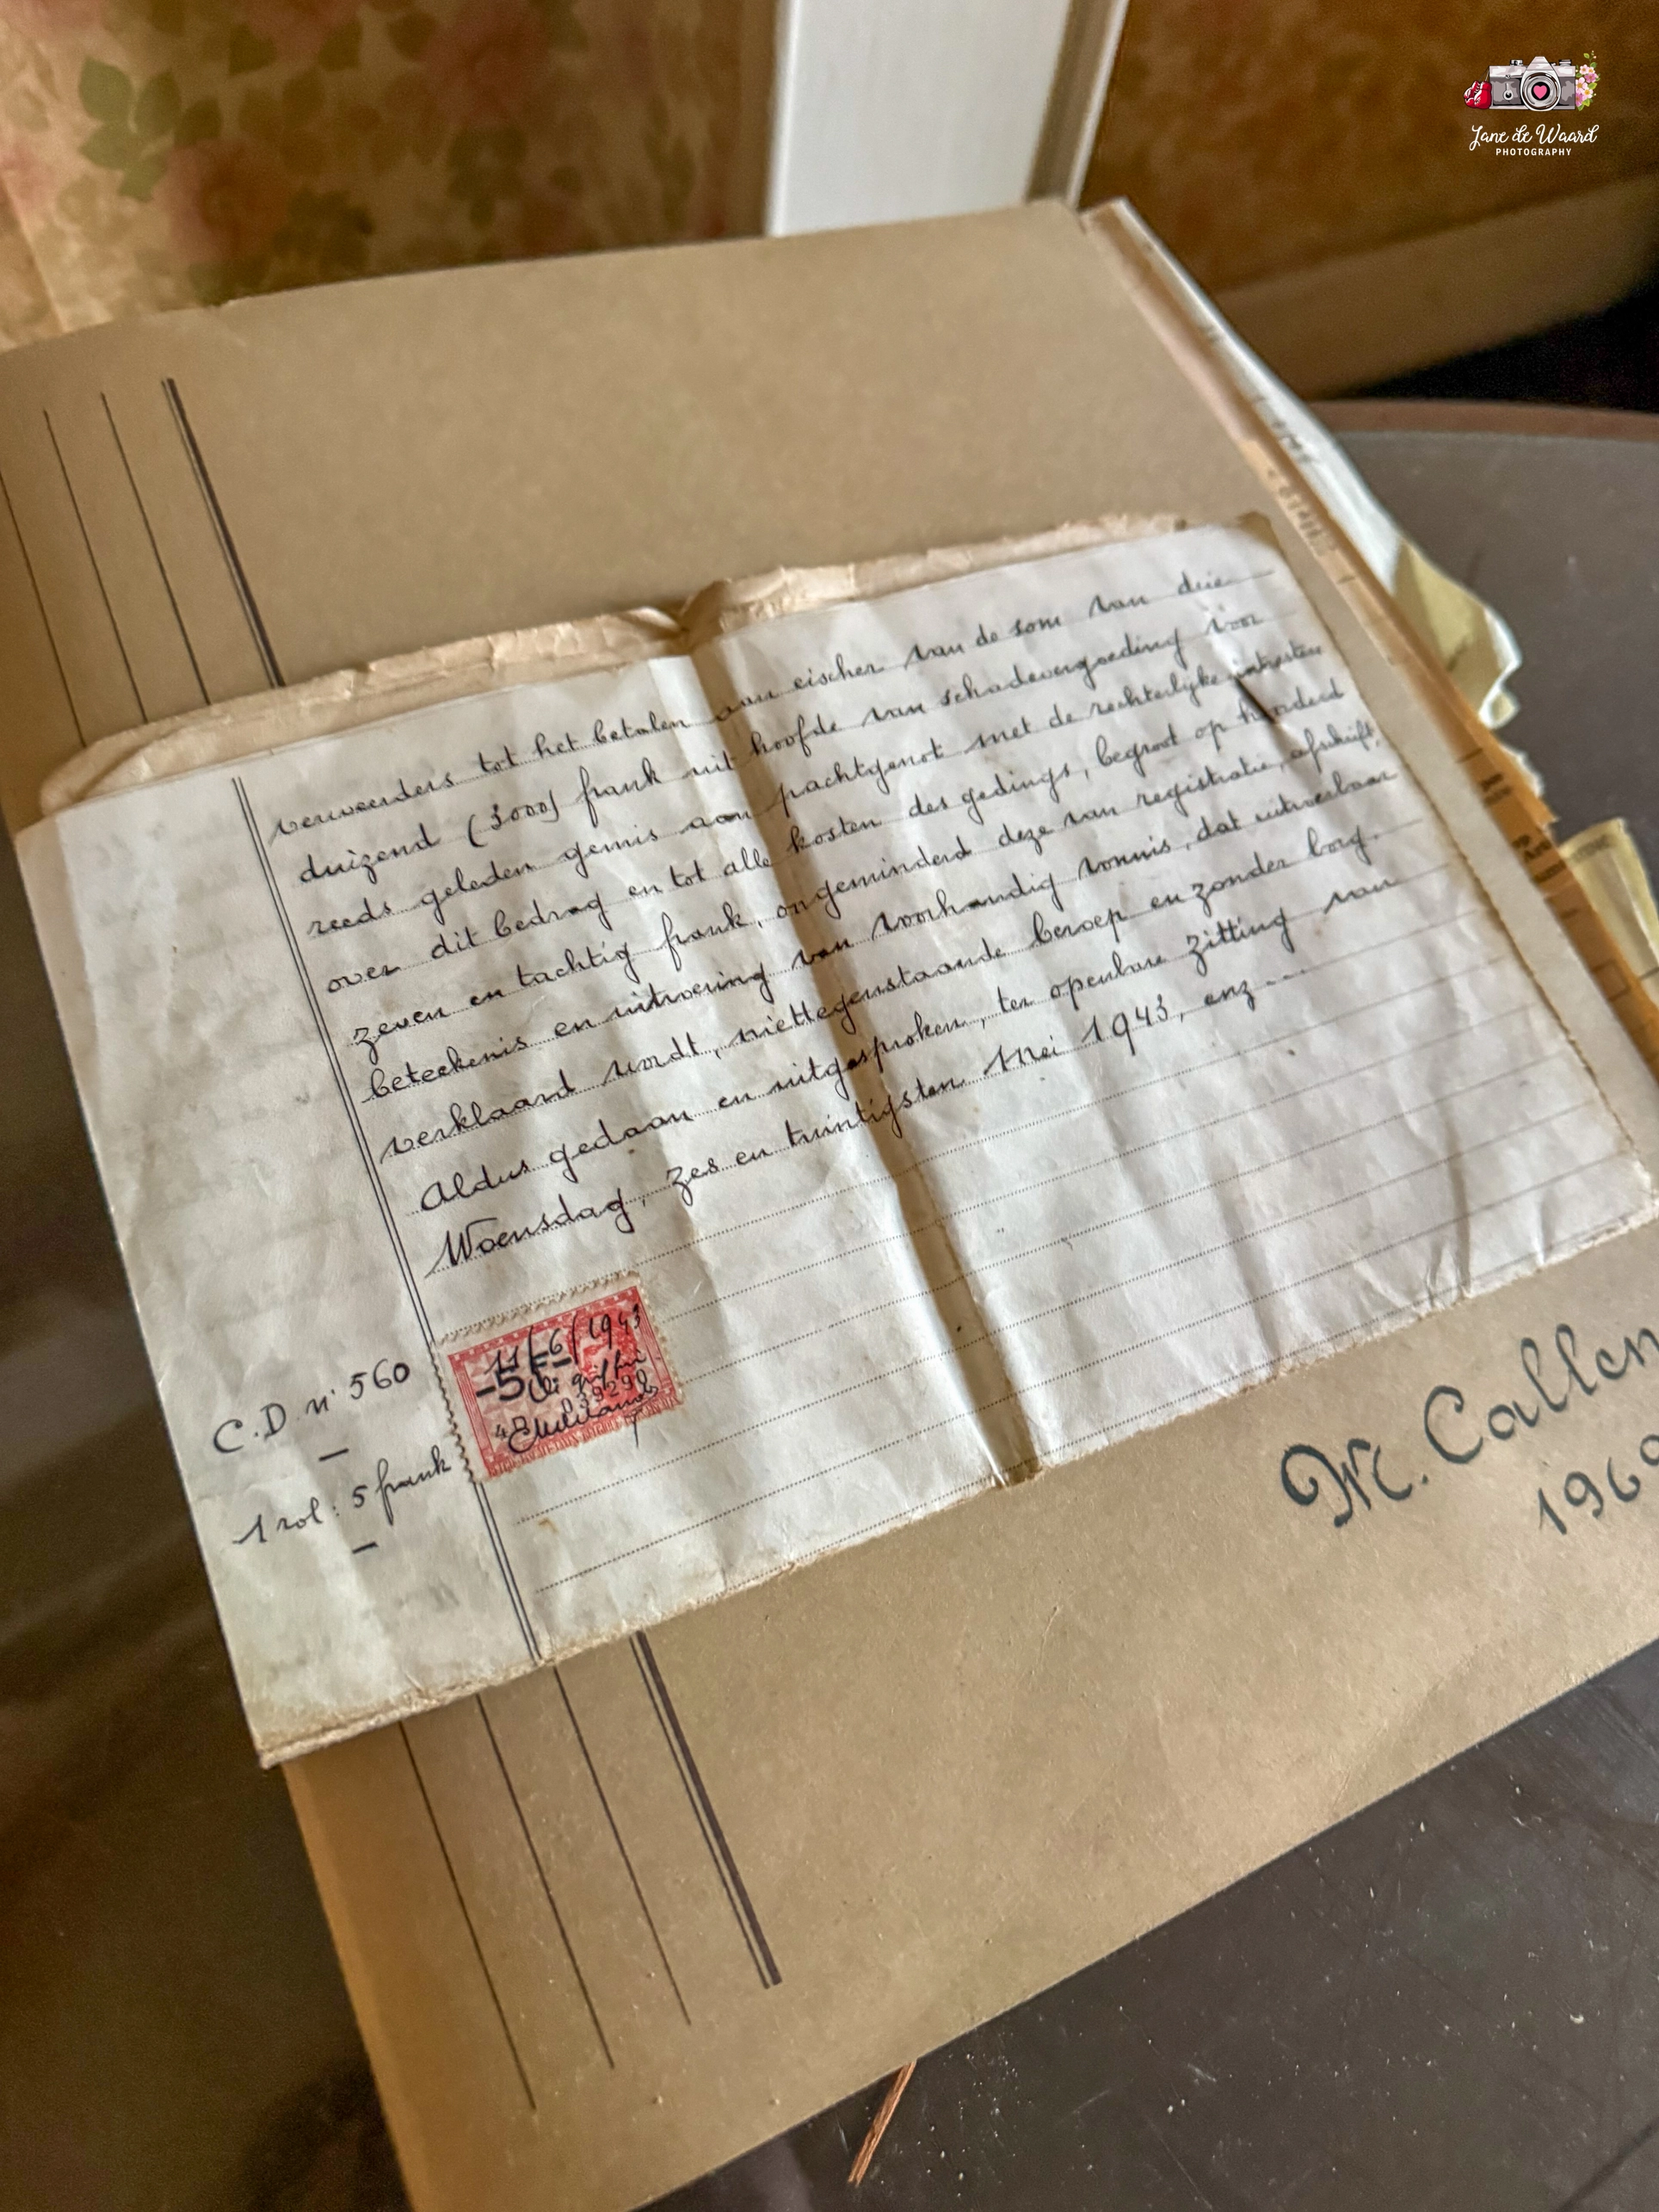 Jane de Waard
PHOTOGRAPHY
verweerders tot het betalen aan eischer van de som van drie
duizend (3000) frank uit hoofde van schadevergoeding voor
reeds geleden gemis aan pachtgenot met de rechterlijke intresten
over dit bedrag en tot alle kosten des gedings, begroot op honderd
zeven en tachtig frank, ongeminderd deze van registratie, afschrift,
beteekenis en uitvoering van voorhandig vonnis, dat uitvoerbaar
verklaard wordt, niettegenstaande beroep en zonder borg.
Aldus gedaan en uitgesproken, ter openbare zitting van
Woensdag, zes en twintigsten Mei 1943, enz...
C.D. n° 560
1 rol: 5 frank
11/6/1943
-5F-
M. Callen
196